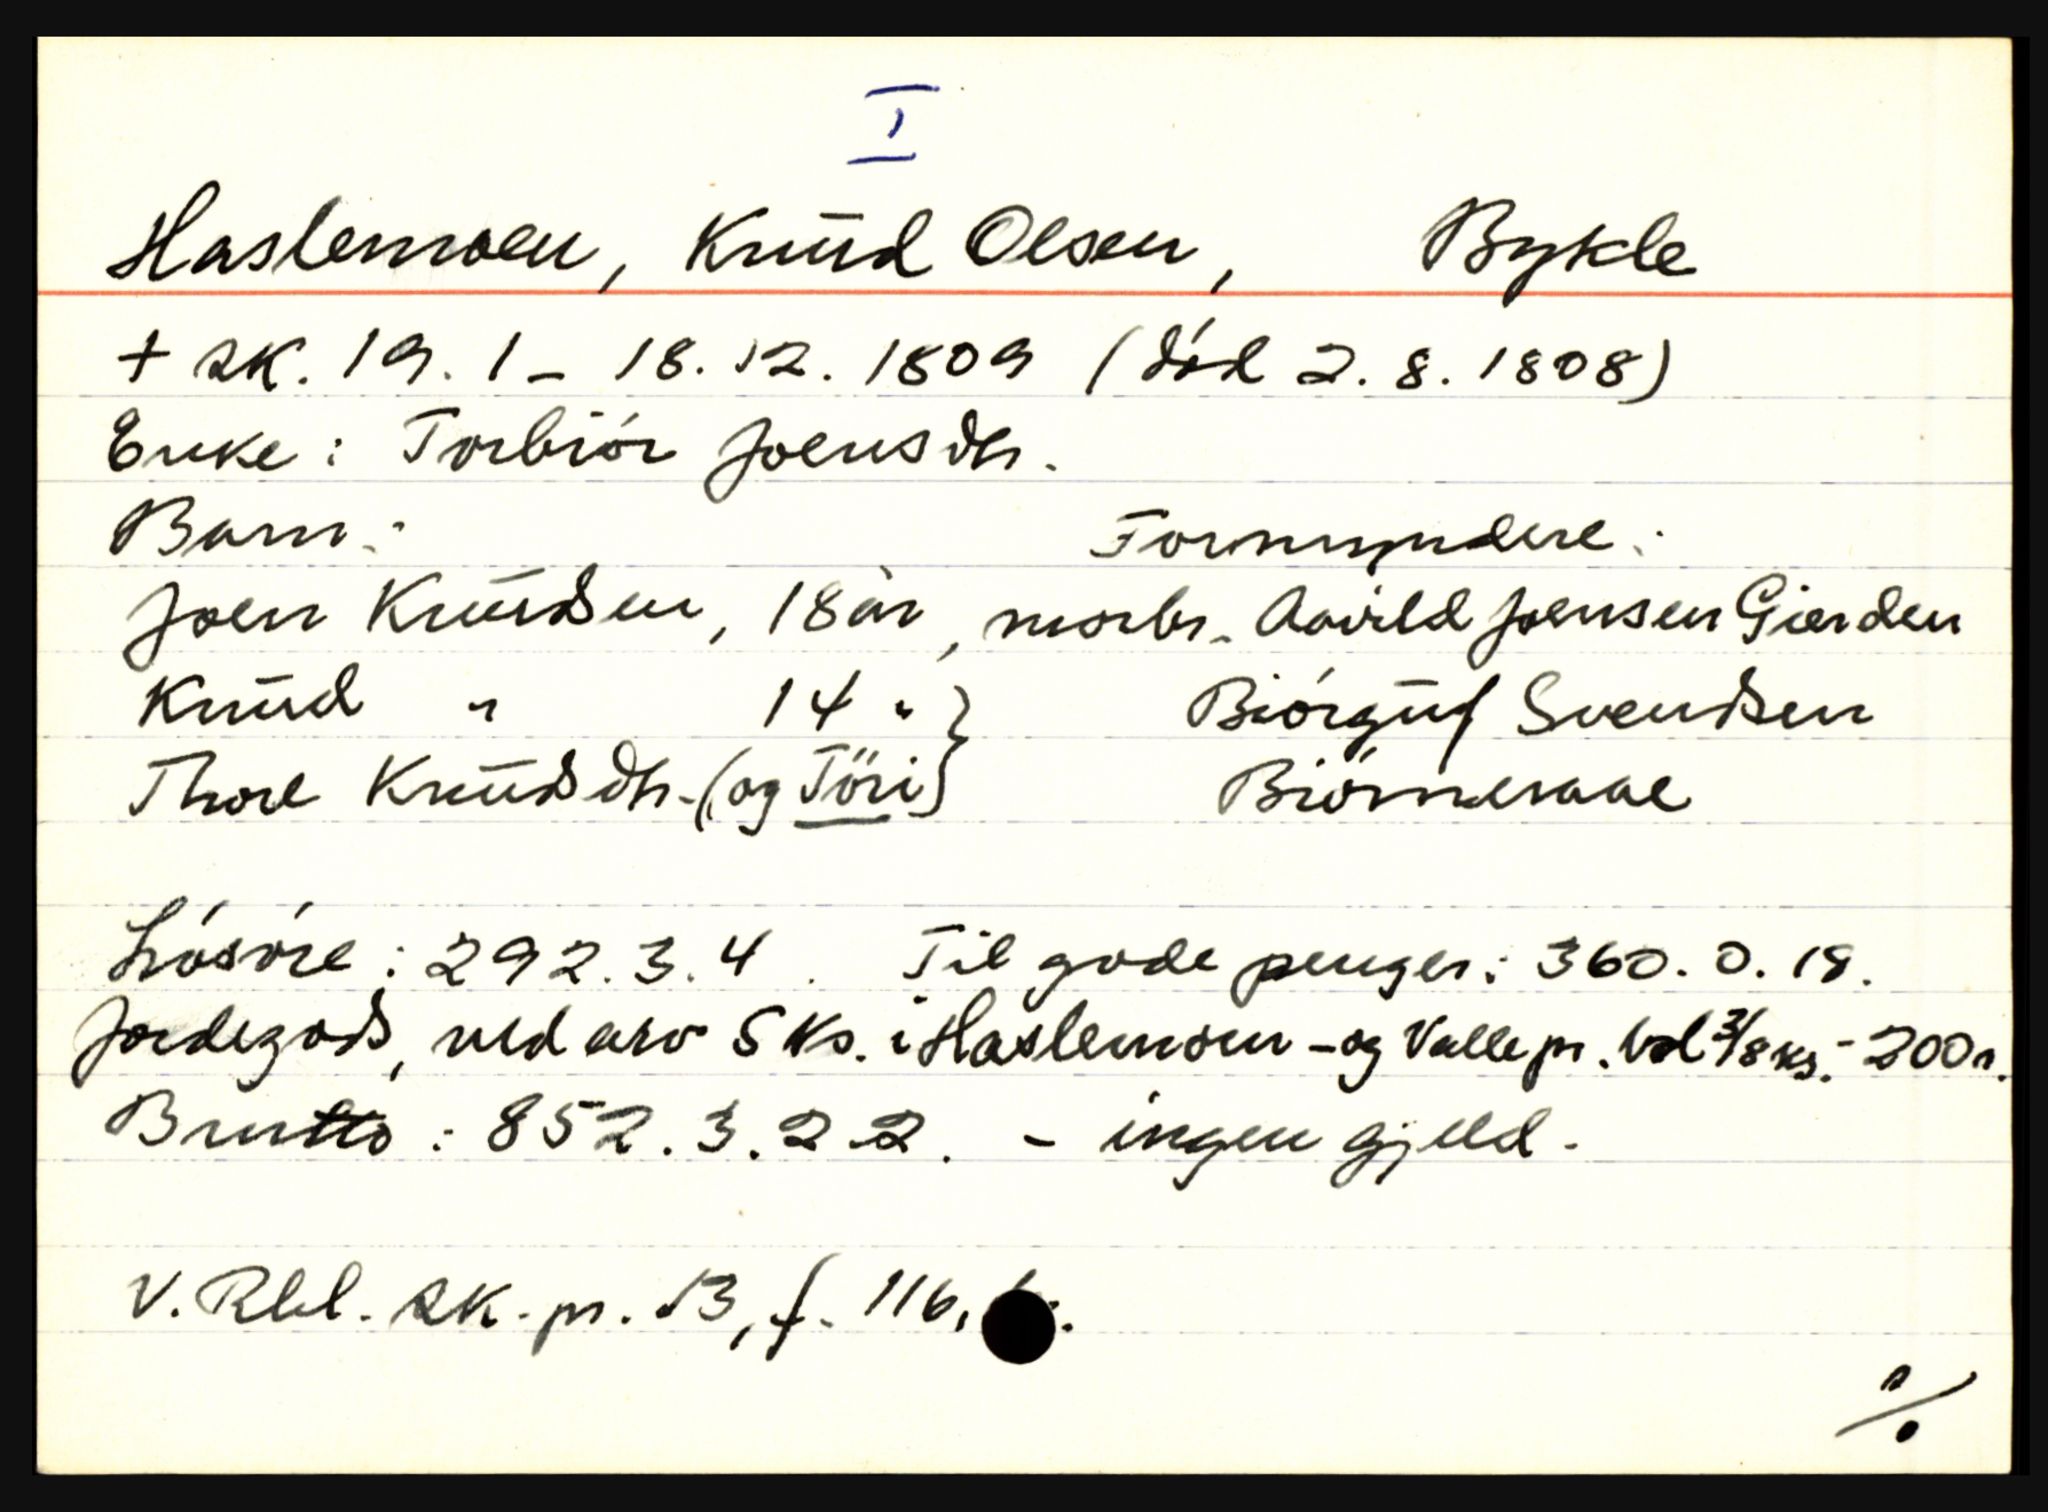 I
Haslemoen, Knud Olsen, Bykle
+ sk. 19.1 - 18.12.1809 (død 2.8.1808)
Enke: Torbiør Joensdtr.
Barn: Formyndere:
Joen Knudsen, 18 år, morbr. Aavild Joensen Gierden
Knud " 14 " } Biørguf Svendsen
Thore Knudsdtr. (og Töri) Biørneraae
Løsøre: 292.3.4. Til gode penger: 360.0.18.
Jordegods, ved arv 5 ks. i Haslemoen - og Valle pr. bol 3/8 ks. - 200 r.
Brutto: 852.3.22. - ingen gjeld.
V. Rbl. sk. pr. 13, f. 116,